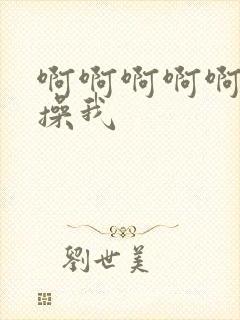 啊啊啊啊啊
操我
劉世美